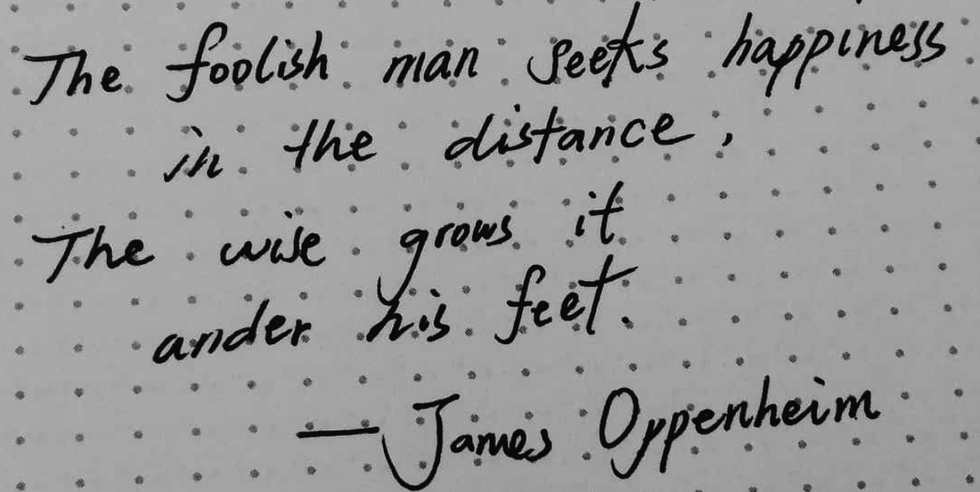 The foolish man seeks happiness
in the distance,
The wise grows it
ander his feet.
— James Oppenheim